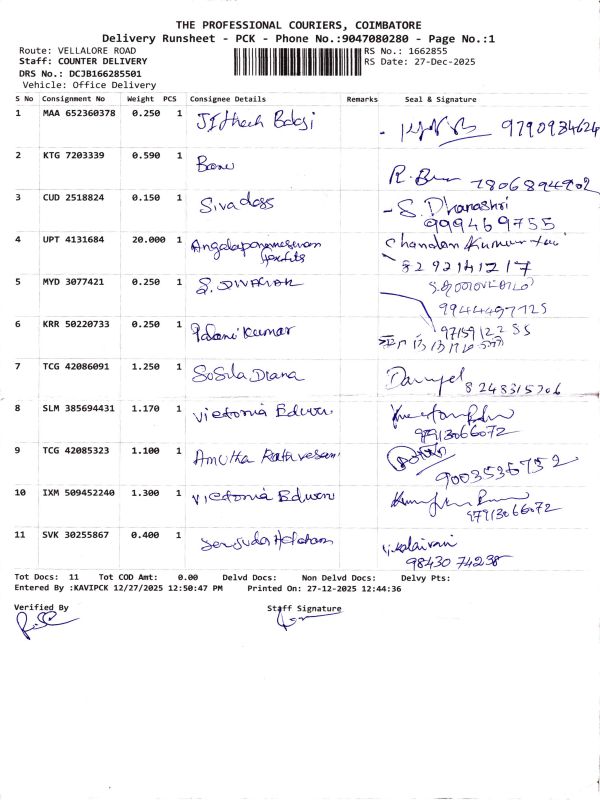 THE PROFESSIONAL COURIERS, COIMBATORE
Delivery Runsheet - PCK - Phone No.:9047080280 - Page No.:1
Route: VELLALORE ROAD RS No.: 1662855
Staff: COUNTER DELIVERY RS Date: 27-Dec-2025
DRS No.: DCJB166285501
Vehicle: Office Delivery
S No Consignment No Weight PCS Consignee Details Remarks Seal & Signature
1 MAA 652360378 0.250 1 Jithesh Balaji 9790934624
2 KTG 7203339 0.590 1 Banu R. 7806894902
3 CUD 2518824 0.150 1 Sivadass S. Dhanashri
999469755
4 UPT 4131684 20.000 1 Angalaparameswari Chandan Kumar
8292141217
5 MYD 3077421 0.250 1 S. DIWAKAR
9944497125
6 KRR 50220733 0.250 1 Palani Kumar 9715912255
7 TCG 42086091 1.250 1 SuSila Diana 8248315206
8 SLM 385694431 1.170 1 Victoria Edwin
97913066072
9 TCG 42085323 1.100 1 Amutha Rathivesan
9003536752
10 IXM 509452240 1.300 1 Victoria Edwin
9791306 6072
11 SVK 30255867 0.400 1 V. Kalaivani
98430 74238
Tot Docs: 11 Tot COD Amt: 0.00 Delvd Docs: Non Delvd Docs: Delvy Pts:
Entered By :KAVIPCK 12/27/2025 12:50:47 PM Printed On: 27-12-2025 12:44:36
Verified By Staff Signature